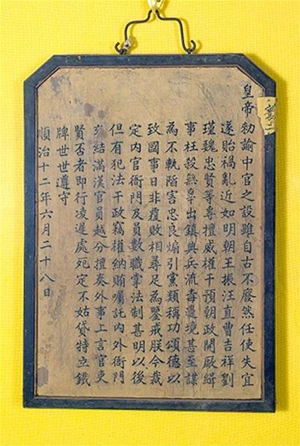 皇帝勅諭中官之設雖自古不廢然任使失宜
遂貽禍亂近如明朝王振汪直曹吉祥劉
瑾魏忠賢等專擅威權干預朝政開厰緝
事枉殺無辜出鎮典兵流毒邊境甚至謀
為不軌陷害忠良煽引黨類稱功頌德以
致國事日非覆敗相尋足為鑒戒朕今裁
定内官衙門及員數職掌法制甚明以後
但有犯法干政竊權納賄囑託内外衙門
交結滿漢官員越分擅奏外事上言官吏
賢否者即行凌遲處死定不姑貸特立鐵
牌世世遵守
順治十二年六月二十八日